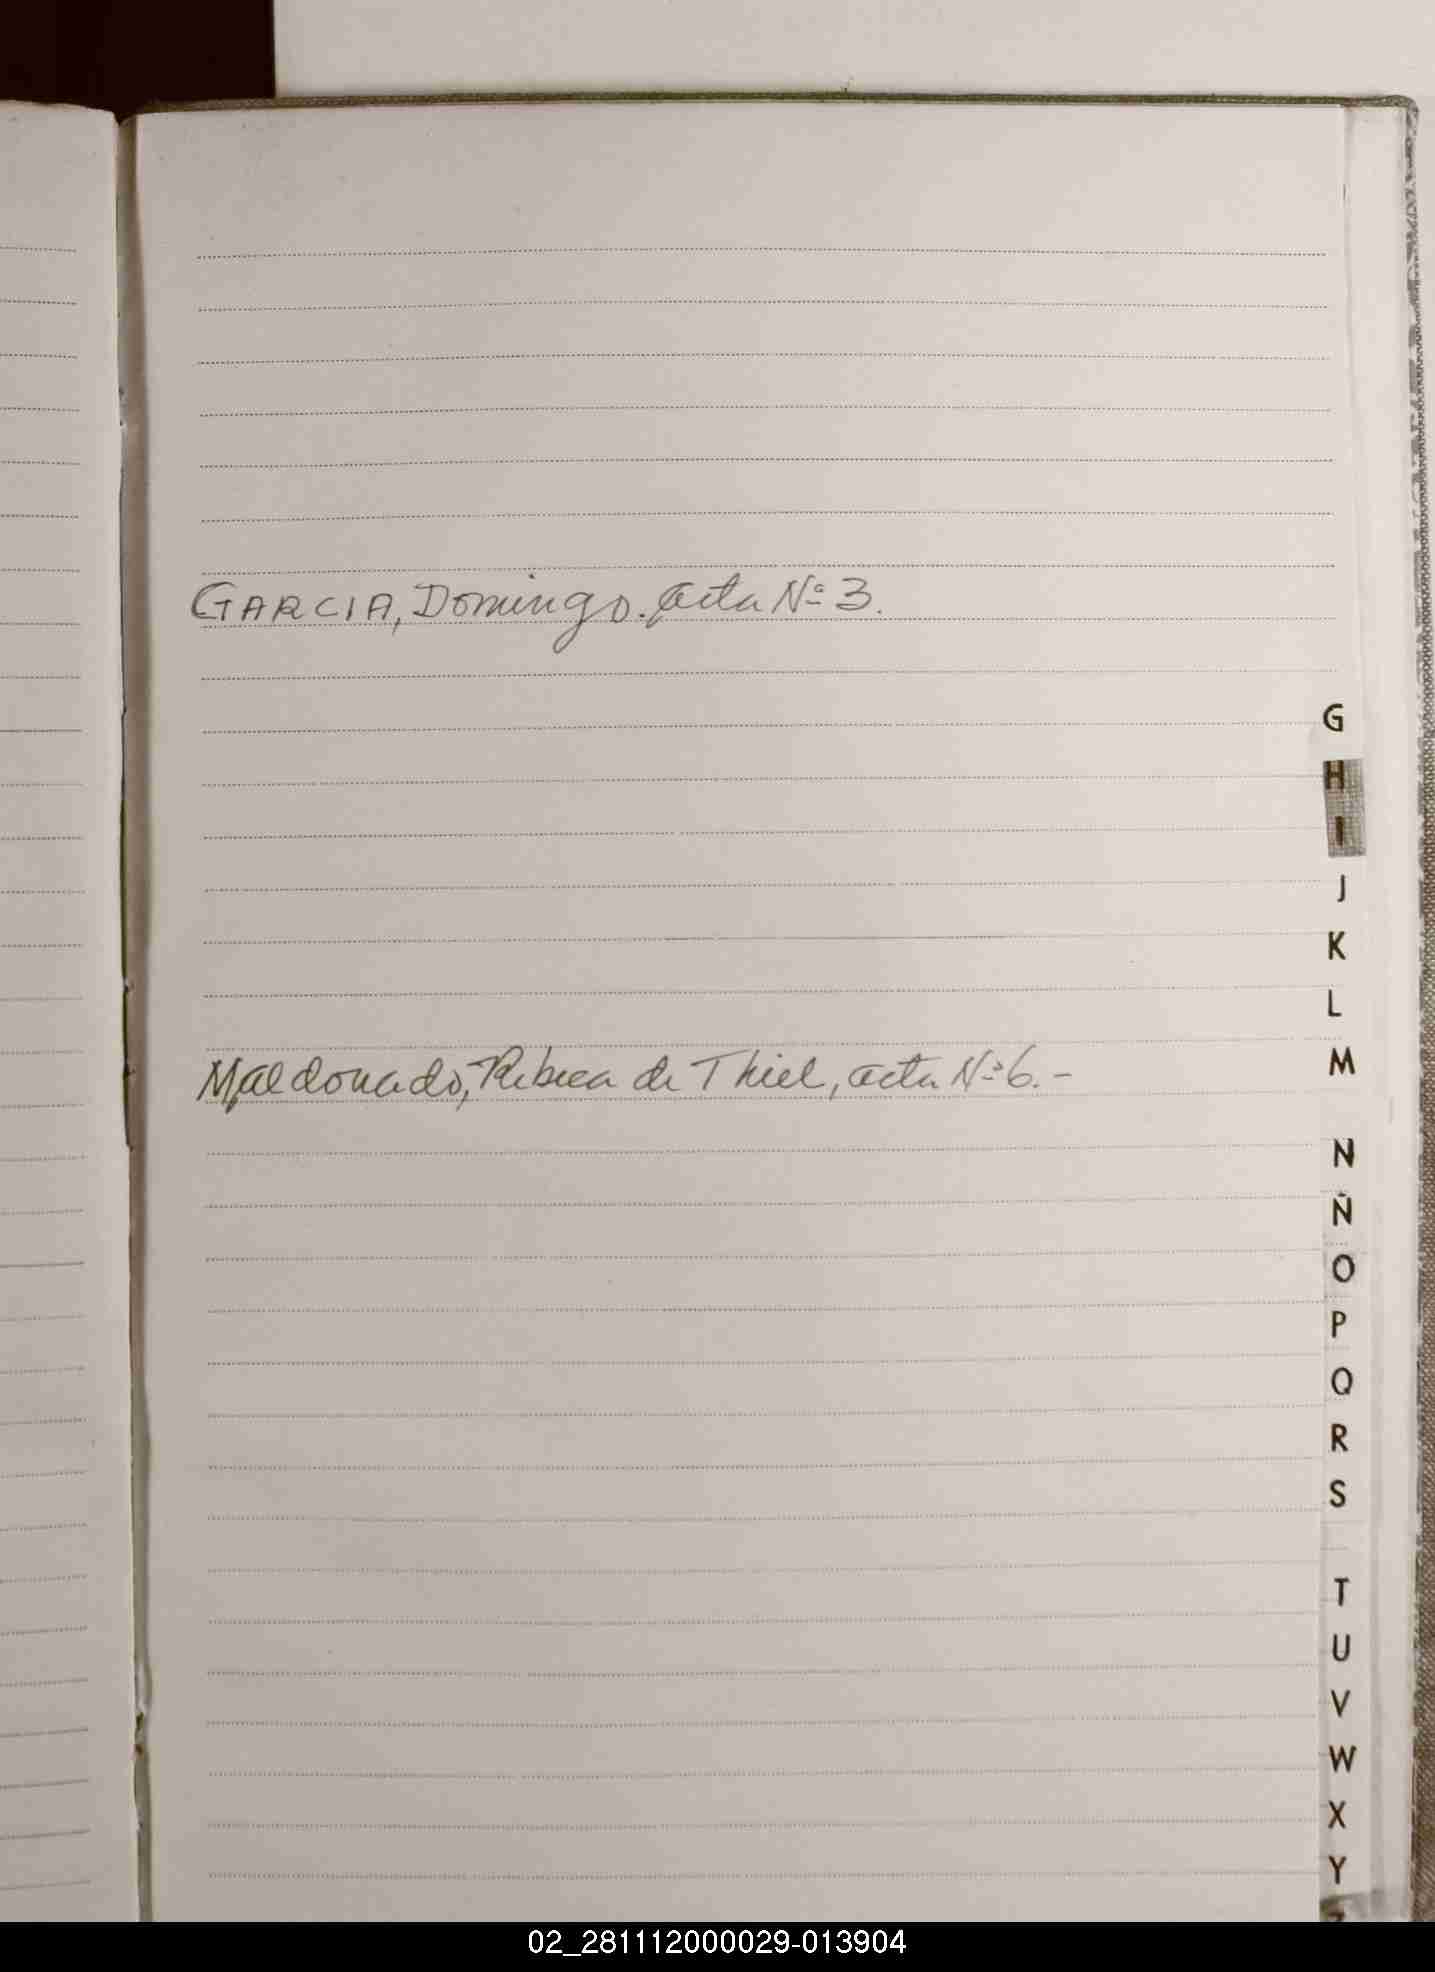 GARCIA, Domingo. acta Nº 3.
G
H
I
J
K
L
Maldonado, Rebeca de Thiel, acta Nº 6.-
M
N
Ñ
O
P
Q
R
S
T
U
V
W
X
Y
02_281112000029-013904